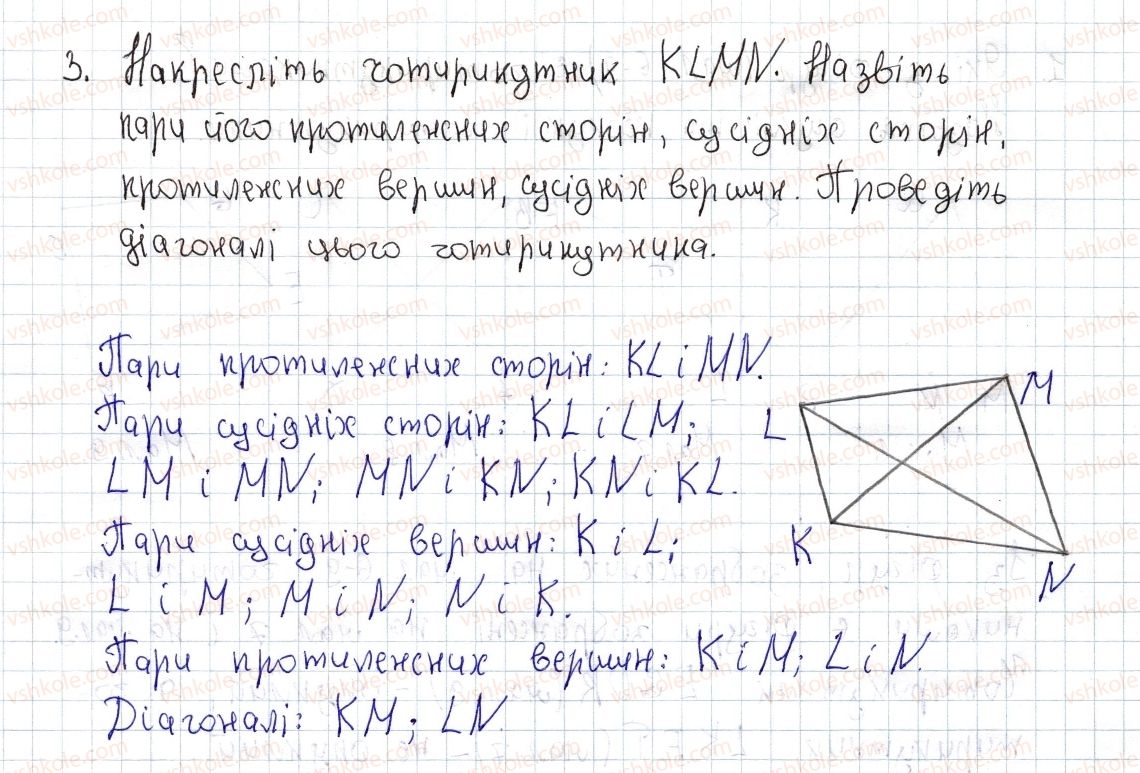 3. Накресліть чотирикутник KLMN. Назвіть
пари його протилежних сторін, сусідніх сторін,
протилежних вершин, сусідніх вершин. Проведіть
діагоналі цього чотирикутника.
Пари протилежних сторін: KL і MN.
Пари сусідніх сторін: KL і LM;
LM і MN; MN і KN; KN і KL.
Пари сусідніх вершин: K і L;
L і M; M і N; N і K.
Пари протилежних вершин: K і M; L і N.
Діагоналі: KM; LN.
L
M
K
N
vshkole.com